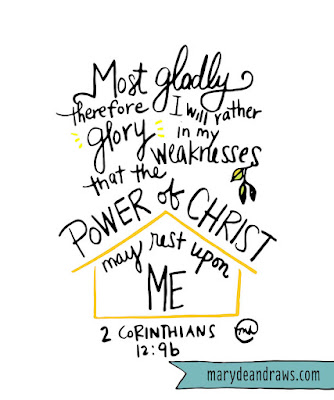 Most gladly
therefore I will rather
glory in my
weaknesses
that the
POWER of CHRIST
may rest upon
ME
2 CORINTHIANS
12:9b
md
marydeandraws.com